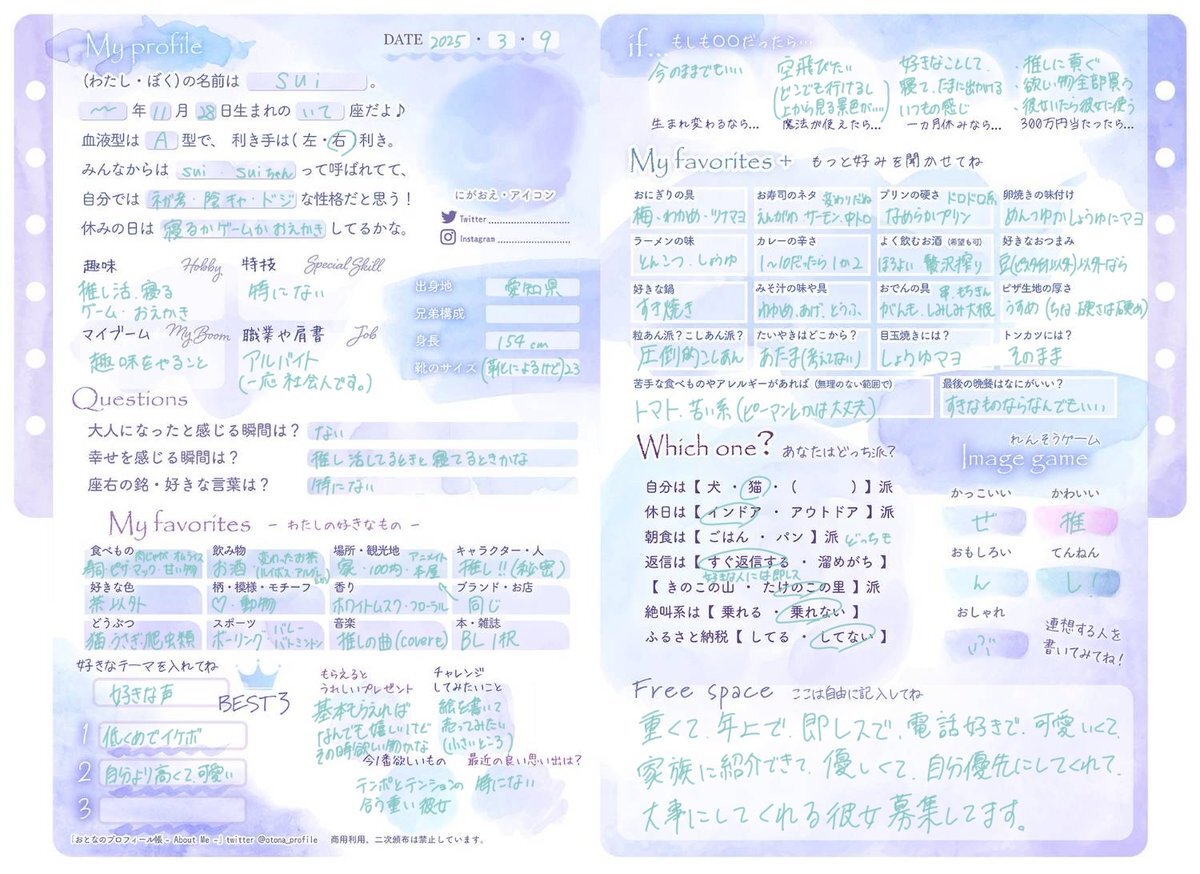 My profile
DATE 2025・3・9
(わたし・ぼく)の名前は sui 。
〜 年 11 月 28 日生まれの いて 座だよ♪
血液型は A 型で、 利き手は(左・右)利き。
みんなからは sui ・ suiちゃん って呼ばれてて、
自分では ネガ考・陰キャ・ドジ な性格だと思う!
休みの日は 寝るかゲームかおえかき してるかな。
にがおえ・アイコン
Twitter
Instagram
趣味 Hobby
推し活、寝る
ゲーム・おえかき
特技 Special Skill
特にない
マイブーム My Boom
趣味をやること
職業や肩書 Job
アルバイト
(一応社会人です。)
出身地 愛知県
兄弟構成
身長 154cm
靴のサイズ (靴によるけど)23
Questions
大人になったと感じる瞬間は? ない
幸せを感じる瞬間は? 推し活してるときと寝てるときかな
座右の銘・好きな言葉は? 特にない
My favorites - わたしの好きなもの -
食べもの 肉じゃが オムライス
鍋・ピザ マック・甘い物
飲み物 変わったお茶
お酒 (ルイボス アールグレイ
場所・観光地 アニメイト
家・100均・本屋
キャラクター・人
推し!!(秘密)
好きな色
茶以外
柄・模様・モチーフ
♡・動物
香り
ホワイトムスク・フローラル
ブランド・お店
同じ
どうぶつ
猫・うさぎ・爬虫類
スポーツ バレー
ボーリング・バトミントン
音楽
推しの曲(cover)
本・雑誌
BL 1択
好きなテーマを入れてね
好きな声
BEST3
1 低くめでイケボ
2 自分より高くて、可愛い
3
もらえると
うれしいプレゼント
基本もらえれば
なんでも嬉しい!てど
その時欲しい物かな
チャレンジ
してみたいこと
絵を書いて
売ってみたい
(小さいところ)
今1番欲しいもの
テンポとテンションの
合う重い彼女
最近の良い思い出は?
特にない
「おとなのプロフィール帳 - About Me -」twitter @otona_profile 商用利用、二次頒布は禁止しています。
if... もしも〇〇だったら…
今のままでもいい
生まれ変わるなら…
空飛びたい
(どこでも行けるし
上から見る景色が…)
魔法が使えたら…
好きなことして、
寝て、たまに出かける
いつもの感じ
一カ月休みなら…
・推しに貢ぐ
・欲しい物全部買う
・彼女いたら彼女に使う
300万円当たったら…
My favorites+ もっと好みを聞かせてね
おにぎりの具
梅・わかめ・ツナマヨ
お寿司のネタ 変わりだね
えんがわ サーモン、中トロ
プリンの硬さ ドロドロ系
なめらかプリン
卵焼きの味付け
めんつゆかしょうゆにマヨ
ラーメンの味
とんこつ・しょうゆ
カレーの辛さ
1〜10だったら1か2
よく飲むお酒 (希望も可)
ほろよい 贅沢搾り
好きなおつまみ
豆(ピスタチオ以外)以外なら
好きな鍋
すき焼き
みそ汁の味や具
わかめ、あげ、とうふ
おでんの具 串、もちきん
がんも、しみしみ大根
ピザ生地の厚さ
うすめ (ちなみ硬さは硬め)
粒あん派?こしあん派?
圧倒的こしあん
たいやきはどこから?
あたま(考えない)
目玉焼きには?
しょうゆマヨ
トンカツには?
そのまま
苦手な食べものやアレルギーがあれば (無理のない範囲で)
トマト、苦い系(ピーマンとかは大丈夫)
最後の晩餐はなにがいい?
すきなものならなんでもいい
Which one? あなたはどっち派?
自分は【 犬 ・ 猫 ・ ( ) 】派
休日は【 インドア ・ アウトドア 】派
朝食は【 ごはん ・ パン 】派 どっちも
返信は【 すぐ返信する ・ 溜めがち 】
好きな人には即レス
【 きのこの山 ・ たけのこの里 】派
絶叫系は【 乗れる ・ 乗れない 】
ふるさと納税【 してる ・ してない 】
れんそうゲーム
Image game
かっこいい
ぜ
かわいい
推
おもしろい
ん
てんねん
し
おしゃれ
ぶ
連想する人を
書いてみてね!
Free space ここは自由に記入してね
重くて、年上で、即レスで、電話好きで、可愛いくて、
家族に紹介できて、優しくて、自分優先にしてくれて、
大事にしてくれる彼女募集してます。